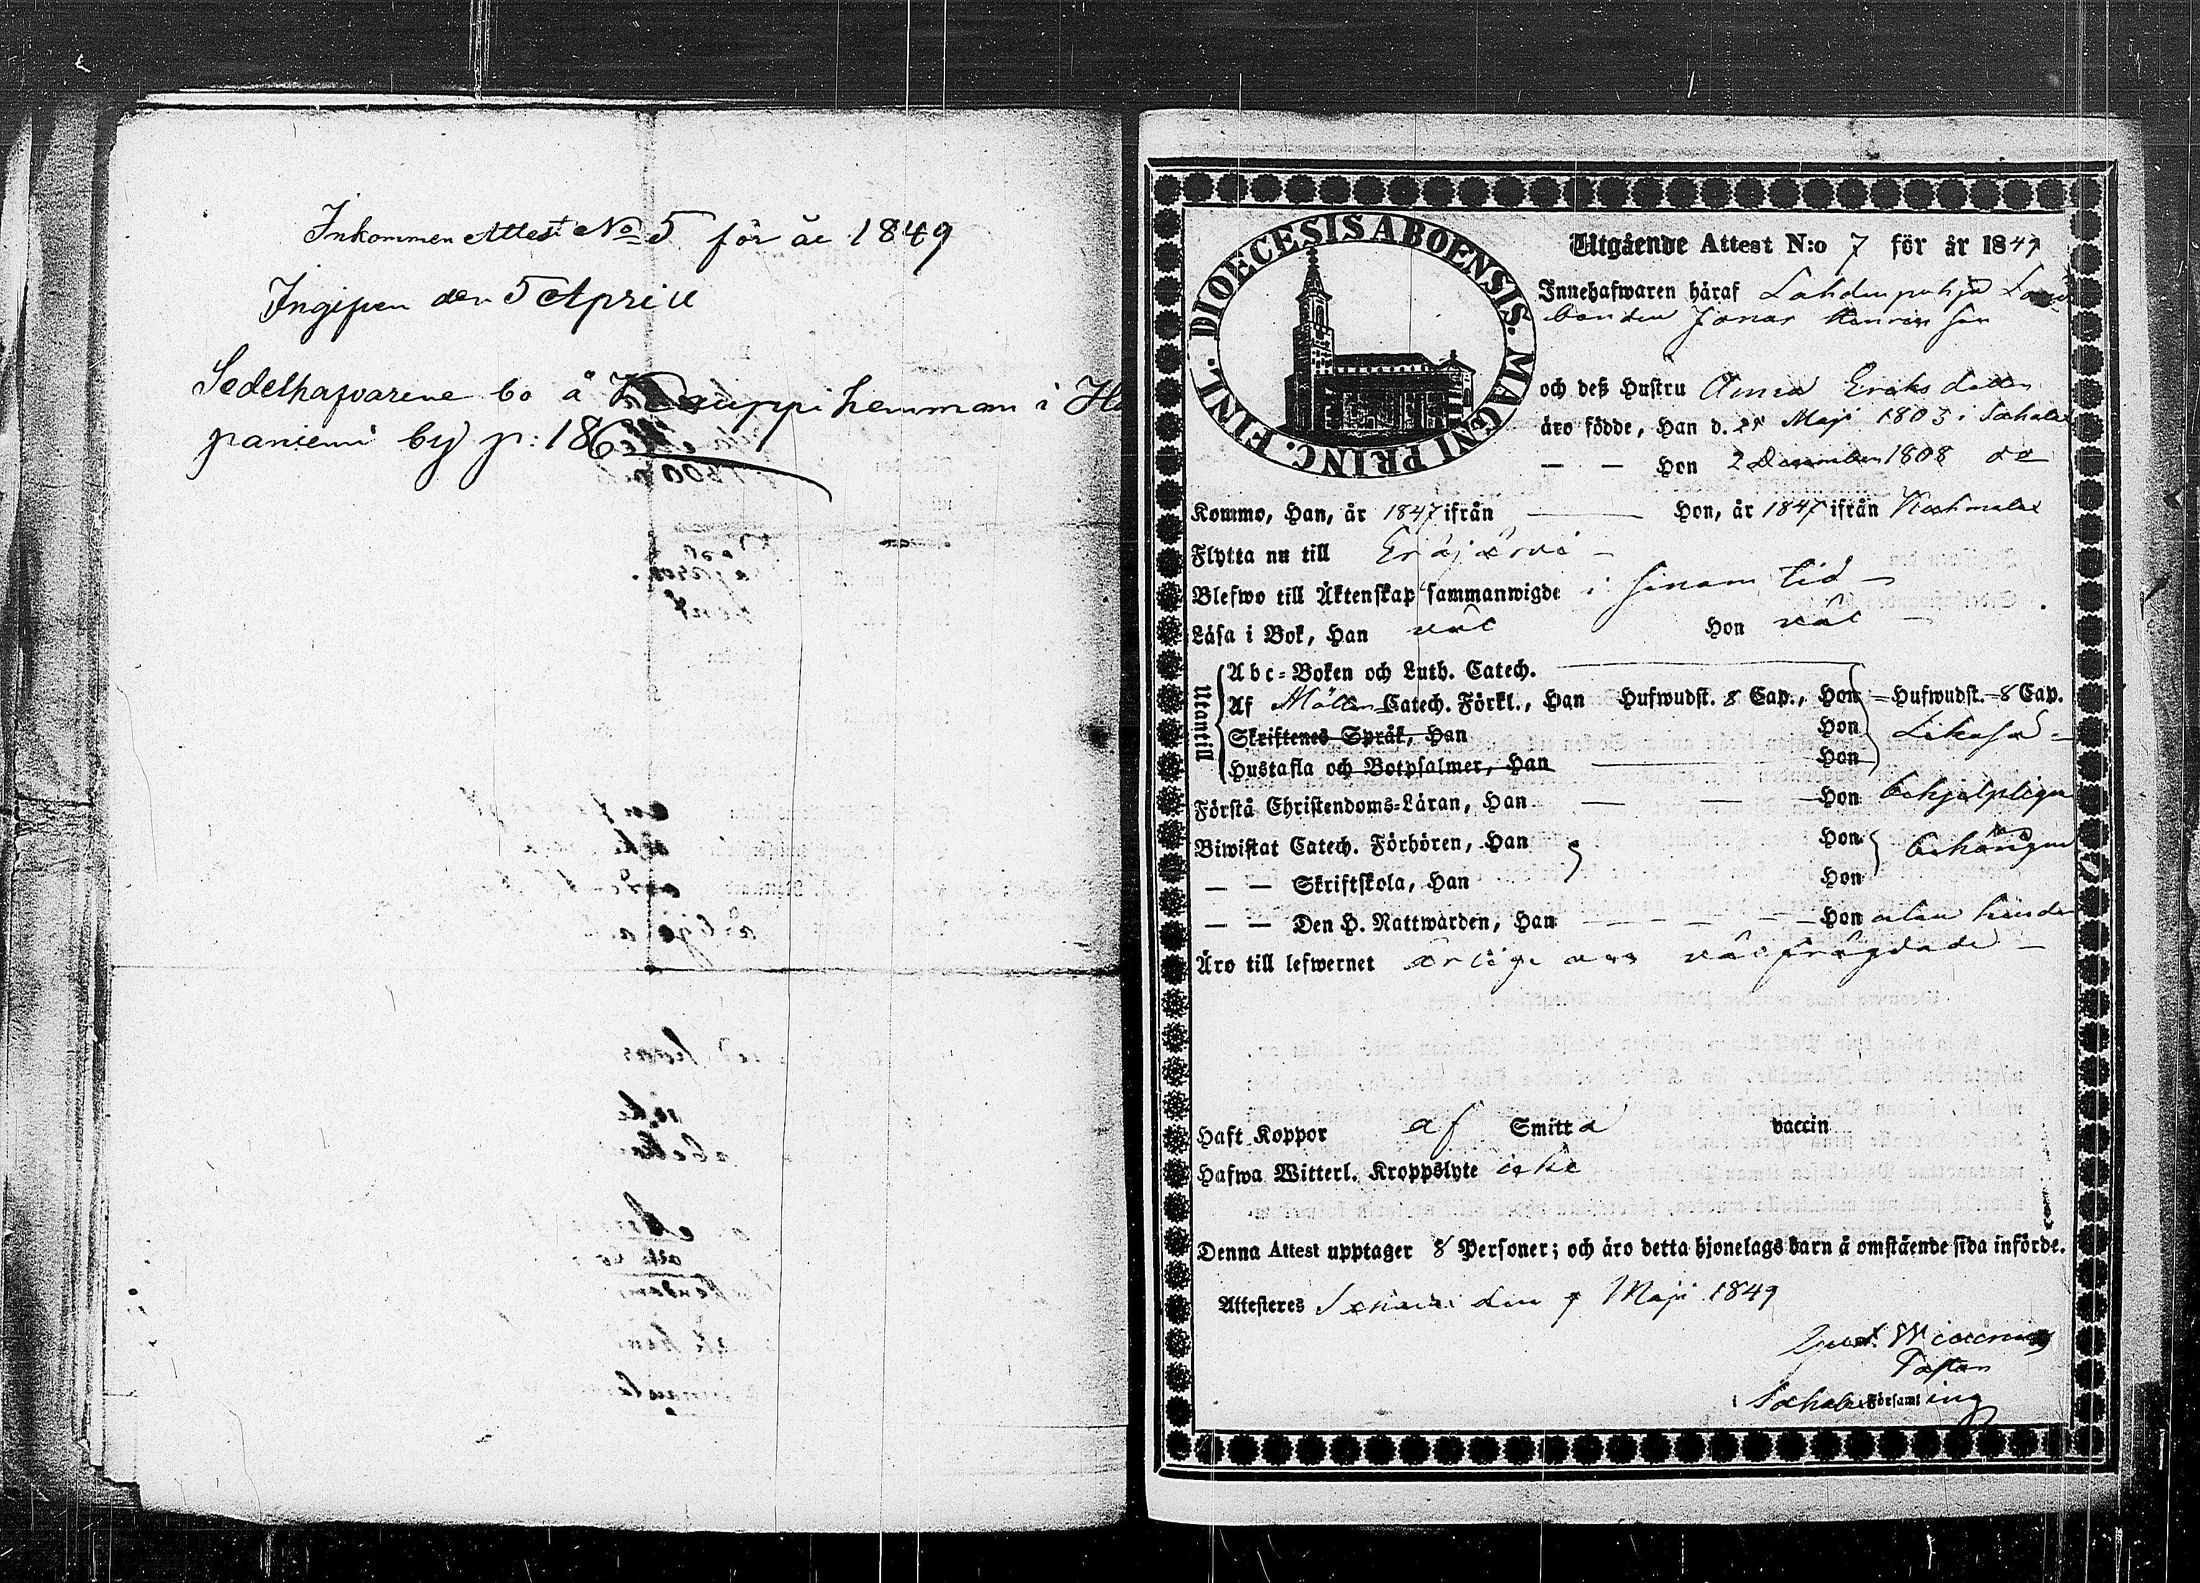 Inkommen Attest No 5 för år 1849
Ingifven den 5 Aprill
Sedelhafvarene bo å Kauppi hemman i Ha
paniemi by p: 186
DIOECESIS ABOENSIS. MAGNI PRINC. FINL.
Utgående Attest N:o 7 för år 1849
Innehafwaren häraf Lahdenpohja
bonden Jonas Henriksson
och deß Hustru Anna Eriksdotter
äro födde, Han d. 25 Maji 1803 i Sahalax
— — Hon 2 December 1808 do
Kommo, Han, år 1847 ifrån — Hon, år 1847 ifrån Kuhmalax
Flytta nu till Eräjärvi —
Blefwo till Äktenskap sammanwigde i sinom tid —
Läsa i Bok, Han väl Hon väl —
Utantill
Abc-Boken och Luth. Catech.
Af Möllers Catech. Förkl., Han Hufwudst. 8 Cap., Hon — Hufwudst. — 8 Cap.
Skriftenes Språk, Han Hon Likaså —
Hustafla och Botpsalmer, Han Hon
Förstå Christendoms-Läran, Han — — — Hon behjelpligen
Biwistat Catech. Förhören, Han Hon behörigen
— — Skriftskola, Han Hon
— — Den H. Nattwarden, Han — — — — Hon utan hinder
Äro till lefwernet ärlige och välfrägdade —
Haft Koppor af Smitta vaccin
Hafwa Witterl. Kroppslyte icke
Denna Attest upptager 8 Personer; och äro detta hjonelags barn å omstående sida införde.
Attesteres den Maji 1849
Pastor
i Sahalax Församling